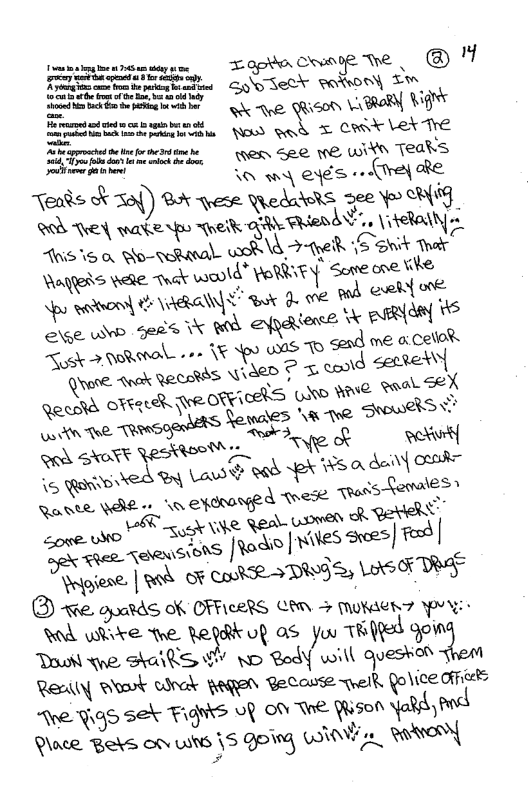 ② 14
I was in a long line at 7:45 am today at the
grocery store that opened at 8 for seniors only.
A young man came from the parking lot and tried
to cut in at the front of the line, but an old lady
shooed him back into the parking lot with her
cane.
He returned and tried to cut in again but an old
man pushed him back into the parking lot with his
walker.
As he approached the line for the 3rd time he
said, "If you folks don't let me unlock the door,
you'll never get in here!
I gotta change The
Subject Anthony I'm
At The prison Library Right
Now And I can't Let The
men see me with Tears
in my eye's ... (They are
Tears of Joy) But These predators see you crying
And They make you Their girl Friend .. literally..
This is a Ab-normal world → Their is shit That
Happen's Here That would "HORRIFY" Some one like
you Anthony literally But 2 me And every one
else who see's it And experience it EVERYday its
Just → normal ... if you was To send me a cellar
phone That Records video? I could secretly
Record officer, The officer's who Have Anal sex
with The Transgenders females in The showers
And staff Restroom.. That's Type of Activity
is prohibited By Law And yet it's a daily occur-
Rance Here .. in exchanged These Trans-females,
some who Look Just like Real women or Better
get Free Televisions / Radio / Nikes shoes / Food /
Hygiene / And OF course → Drug's, Lots OF Drugs
③ The guards or officers can → murder → you
And write The Report up as you Tripped going
Down The stair's No Body will question Them
Really About what Happen Because Their police officers
The pigs set Fights up on The prison yard, And
Place Bets on who is going win .. Anthony